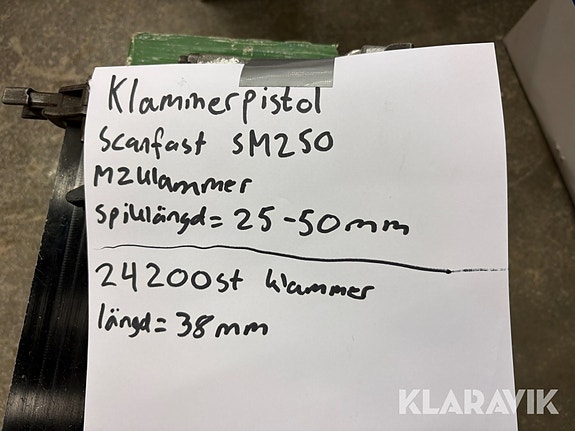 Klammerpistol
Scanfast SM250
M2klammer
Spiklängd= 25-50mm
24200st klammer
längd= 38mm
KLARAVIK